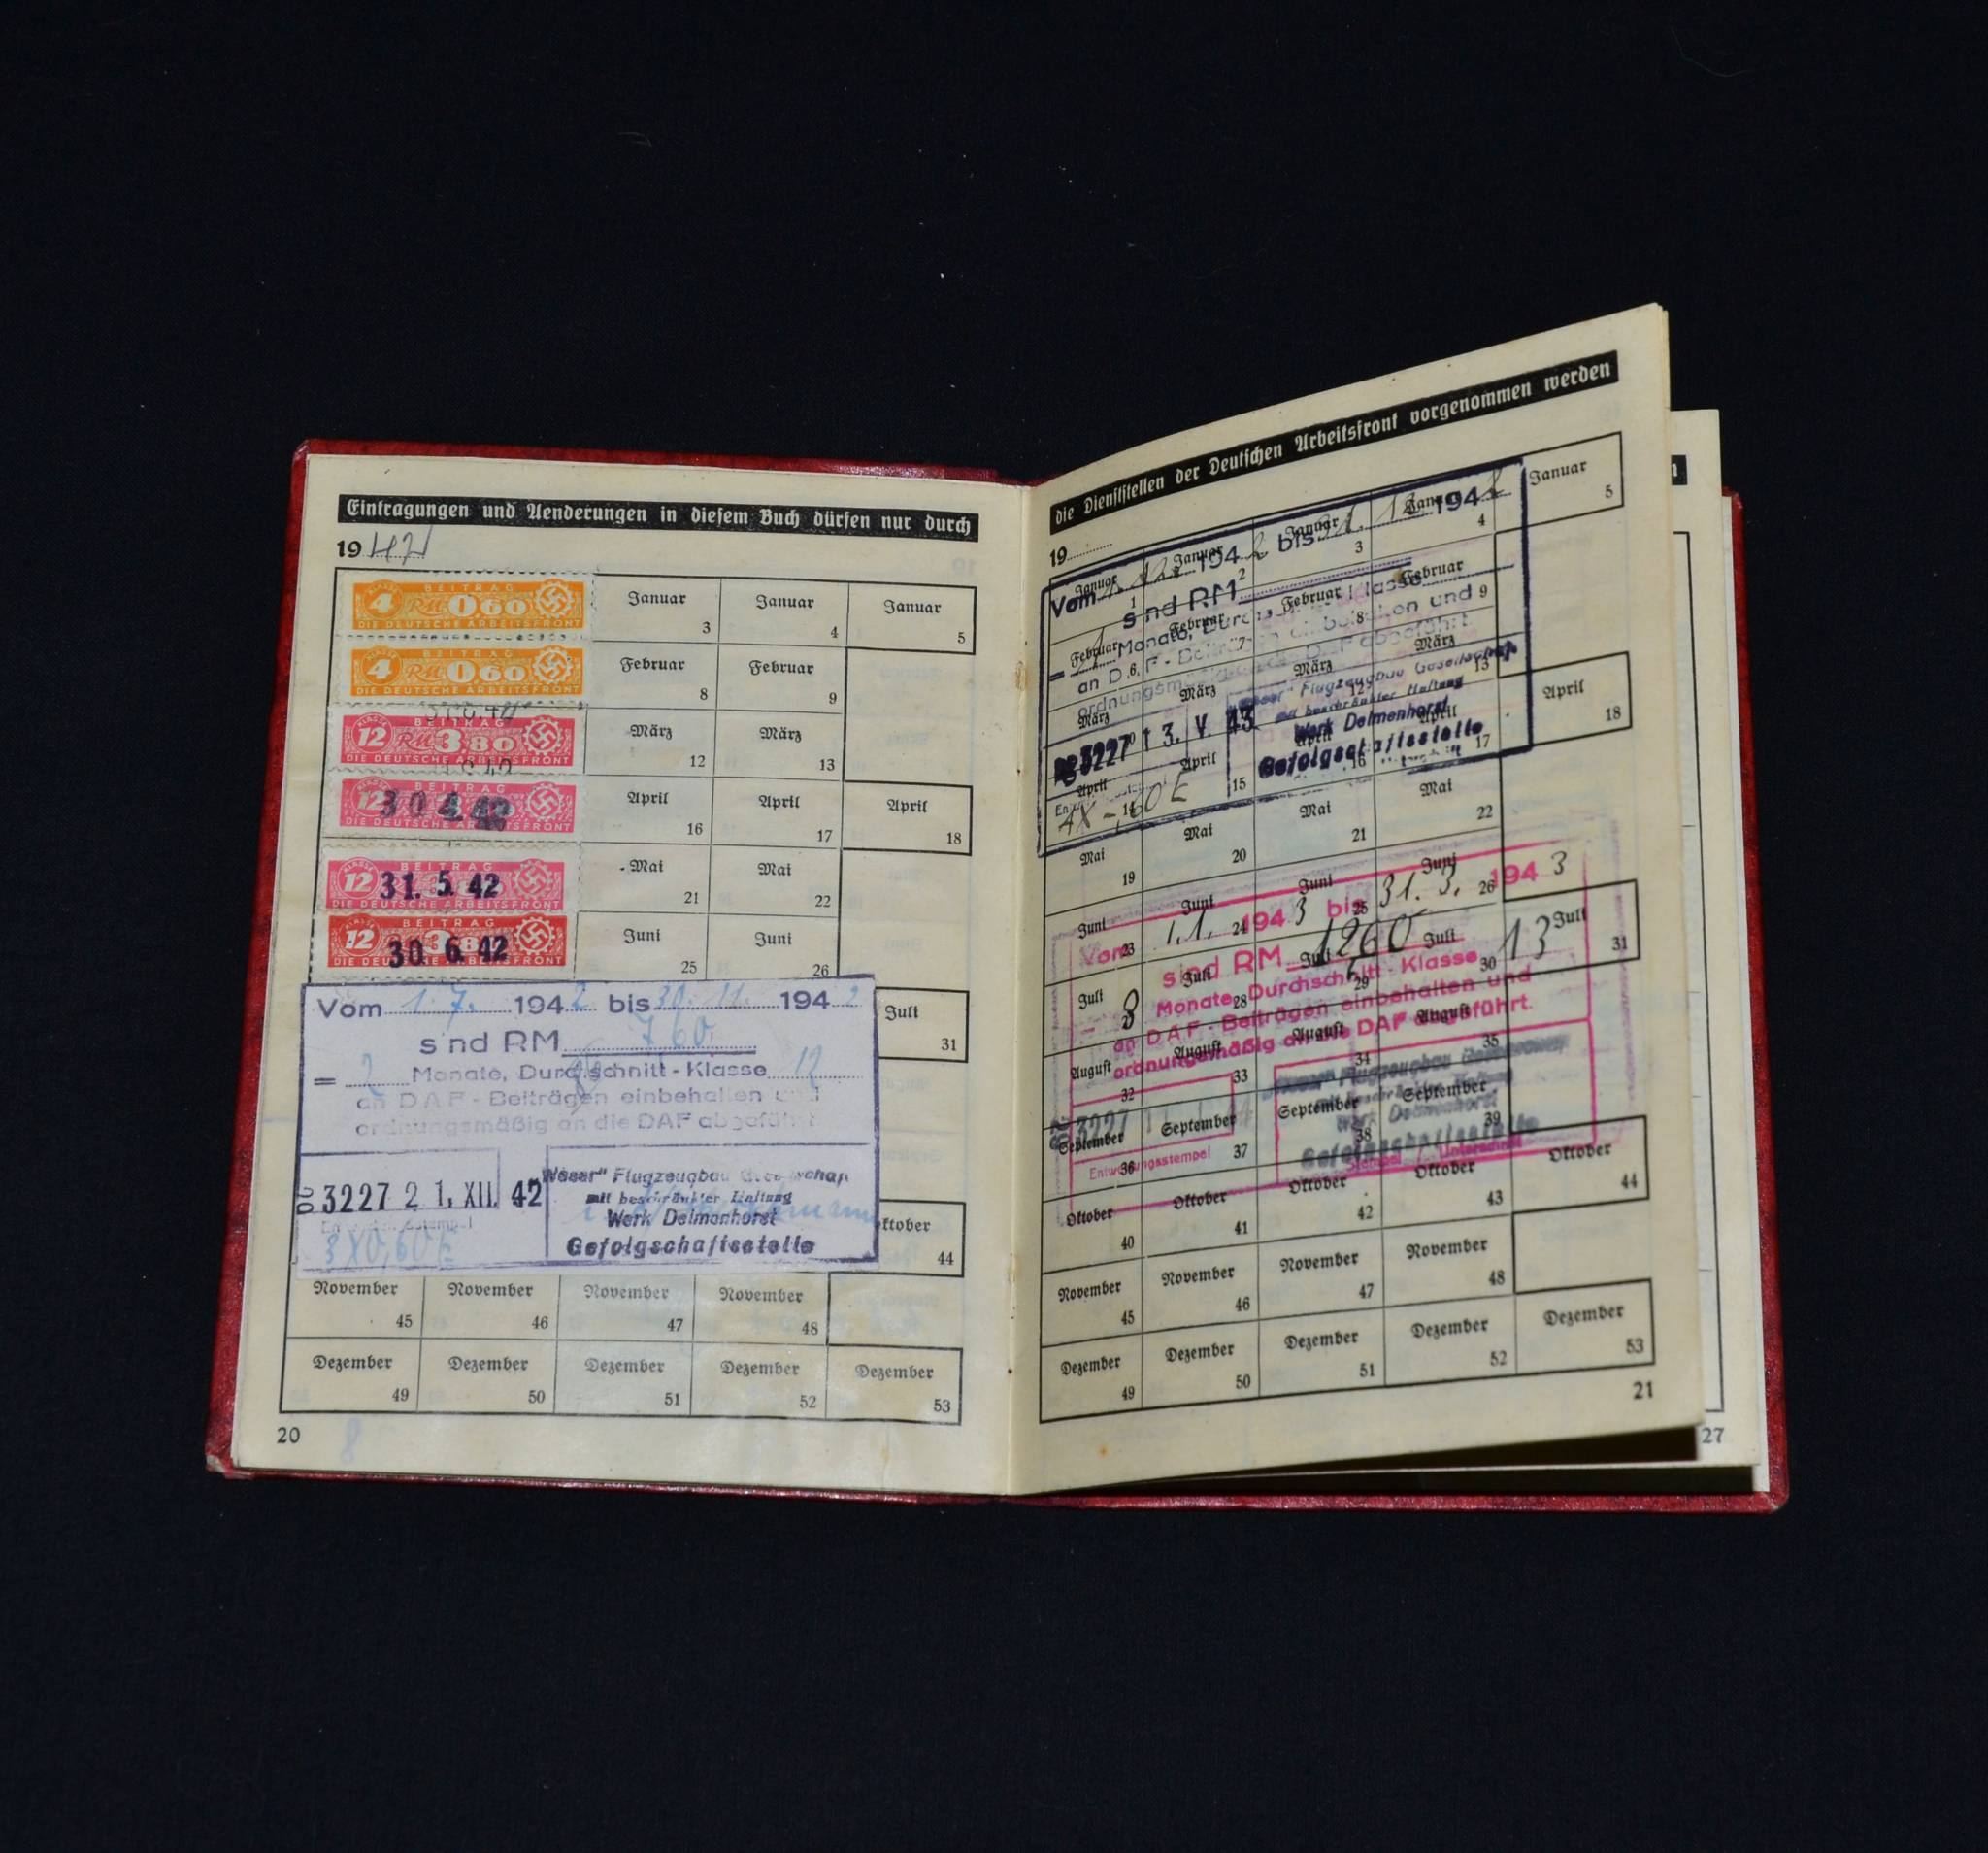 Eintragungen und Aenderungen in diesem Buch dürfen nur durch
19 42
KLASSE 4 BEITRAG RM 0,60
DIE DEUTSCHE ARBEITSFRONT
Januar 3
Januar 4
Januar 5
4 BEITRAG RM 0,60
DIE DEUTSCHE ARBEITSFRONT
Februar 8
Februar 9
12 BEITRAG RM 3,80
DIE DEUTSCHE ARBEITSFRONT
März 12
März 13
12 30 4. 42
DIE DEUTSCHE ARBEITSFRONT
April 16
April 17
April 18
12 BEITRAG 31. 5. 42
DIE DEUTSCHE ARBEITSFRONT
Mai 21
Mai 22
12 BEITRAG 30. 6. 42
Juni 25
Juni 26
Vom 1. 7. 1942 bis 30. 11. 194
sind RM 7 60
= 2 Monate, Durchschnitt-Klasse 12
an DAF-Beiträgen einbehalten und
ordnungsmäßig an die DAF abgeführt
Juli 31
3227 2 1. XII. 42
3 X 0,60 E
Weser" Flugzeugbau
mit beschränkter Haftung
Werk Delmenhorst
Gefolgschaftsstelle
ktober 44
November 45
November 46
November 47
November 48
Dezember 49
Dezember 50
Dezember 51
Dezember 52
Dezember 53
20
8
die Dienststellen der Deutschen Arbeitsfront vorgenommen werden
19
Januar 1
Januar 2
Januar 3
Januar 4
Januar 5
Vom 194 bis 31. 12 194
sind RM
Monate,
an DAF-Beiträgen einbehalten und
ordnungsmäßig DAF abgeführt
Februar 6
Februar 7
Februar 8
Februar 9
März
März
März 12
März 13
3227 1 3. V. 43
"Weser" Flugzeugbau Gesellschaft
mit beschränkter Haftung
Werk Delmenhorst
Gefolgschaftsstelle
April 14
April 15
April 16
April 17
April 18
Mai 19
Mai 20
Mai 21
Mai 22
Juni 23
Juni 24
Juni 25
Juni 26
Vom 1. 1. 194 3 bis 31. 3. 194 3
sind RM 1260
= 3 Monate, Durchschnitt-Klasse 13
an DAF-Beiträgen einbehalten und
ordnungsmäßig an die DAF abgeführt.
Juli
Juli 28
Juli 29
Juli 30
Juli 31
August 32
August 33
August 34
August 35
3227
Entwertungsstempel
Flugzeugbau
Werk Delmenhorst
Gefolgschaftsstelle
Stempel / Unterschrift
September 36
September 37
September 38
September 39
Oktober 40
Oktober 41
Oktober 42
Oktober 43
Oktober 44
November 45
November 46
November 47
November 48
Dezember 49
Dezember 50
Dezember 51
Dezember 52
Dezember 53
21
27